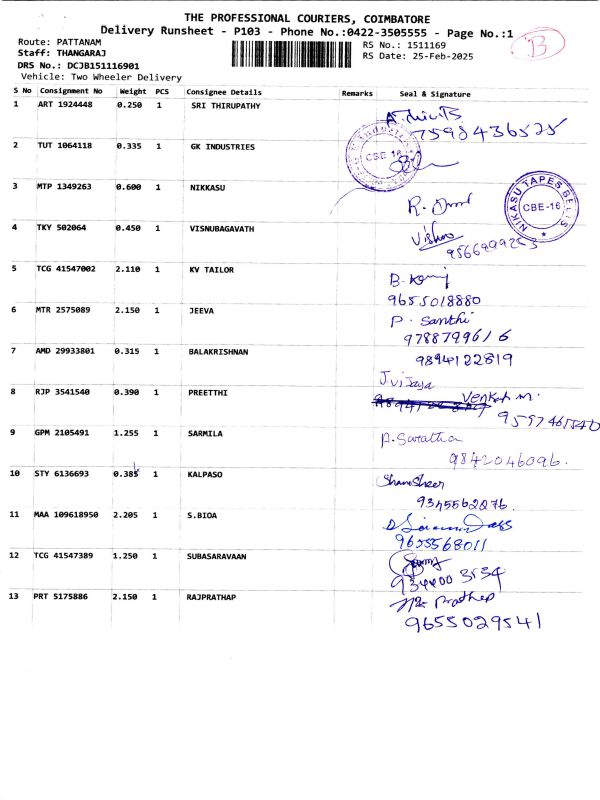 THE PROFESSIONAL COURIERS, COIMBATORE
Delivery Runsheet - P103 - Phone No.:0422-3505555 - Page No.:1
B
Route: PATTANAM
RS No.: 1511169
Staff: THANGARAJ
RS Date: 25-Feb-2025
DRS No.: DCJB151116901
Vehicle: Two Wheeler Delivery
S No Consignment No Weight PCS Consignee Details Remarks Seal & Signature
1 ART 1924448 0.250 1 SRI THIRUPATHY
7598436525
2 TUT 1064118 0.335 1 GK INDUSTRIES
CBE-16
3 MTP 1349263 0.600 1 NIKKASU
NIKASU TAPES BELTS
CBE-16
4 TKY 502064 0.450 1 VISNUBAGAVATH
Vishnu
9566999253
5 TCG 41547002 2.110 1 KV TAILOR
9655018880
6 MTR 2575089 2.150 1 JEEVA
P. Santhi
9788799616
7 AMD 29933801 0.315 1 BALAKRISHNAN
9894122819
J vijaya
8 RJP 3541540 0.390 1 PREETTHI
Venkat m.
9 GPM 2105491 1.255 1 SARMILA
9842046096.
10 STY 6136693 0.385 1 KALPASO
Shamsheer
9345562276.
11 MAA 109618950 2.205 1 S.BIOA
9655568011
12 TCG 41547389 1.250 1 SUBASARAVAAN
934400 3534
13 PRT 5175886 2.150 1 RAJPRATHAP
Prathep
9655029541